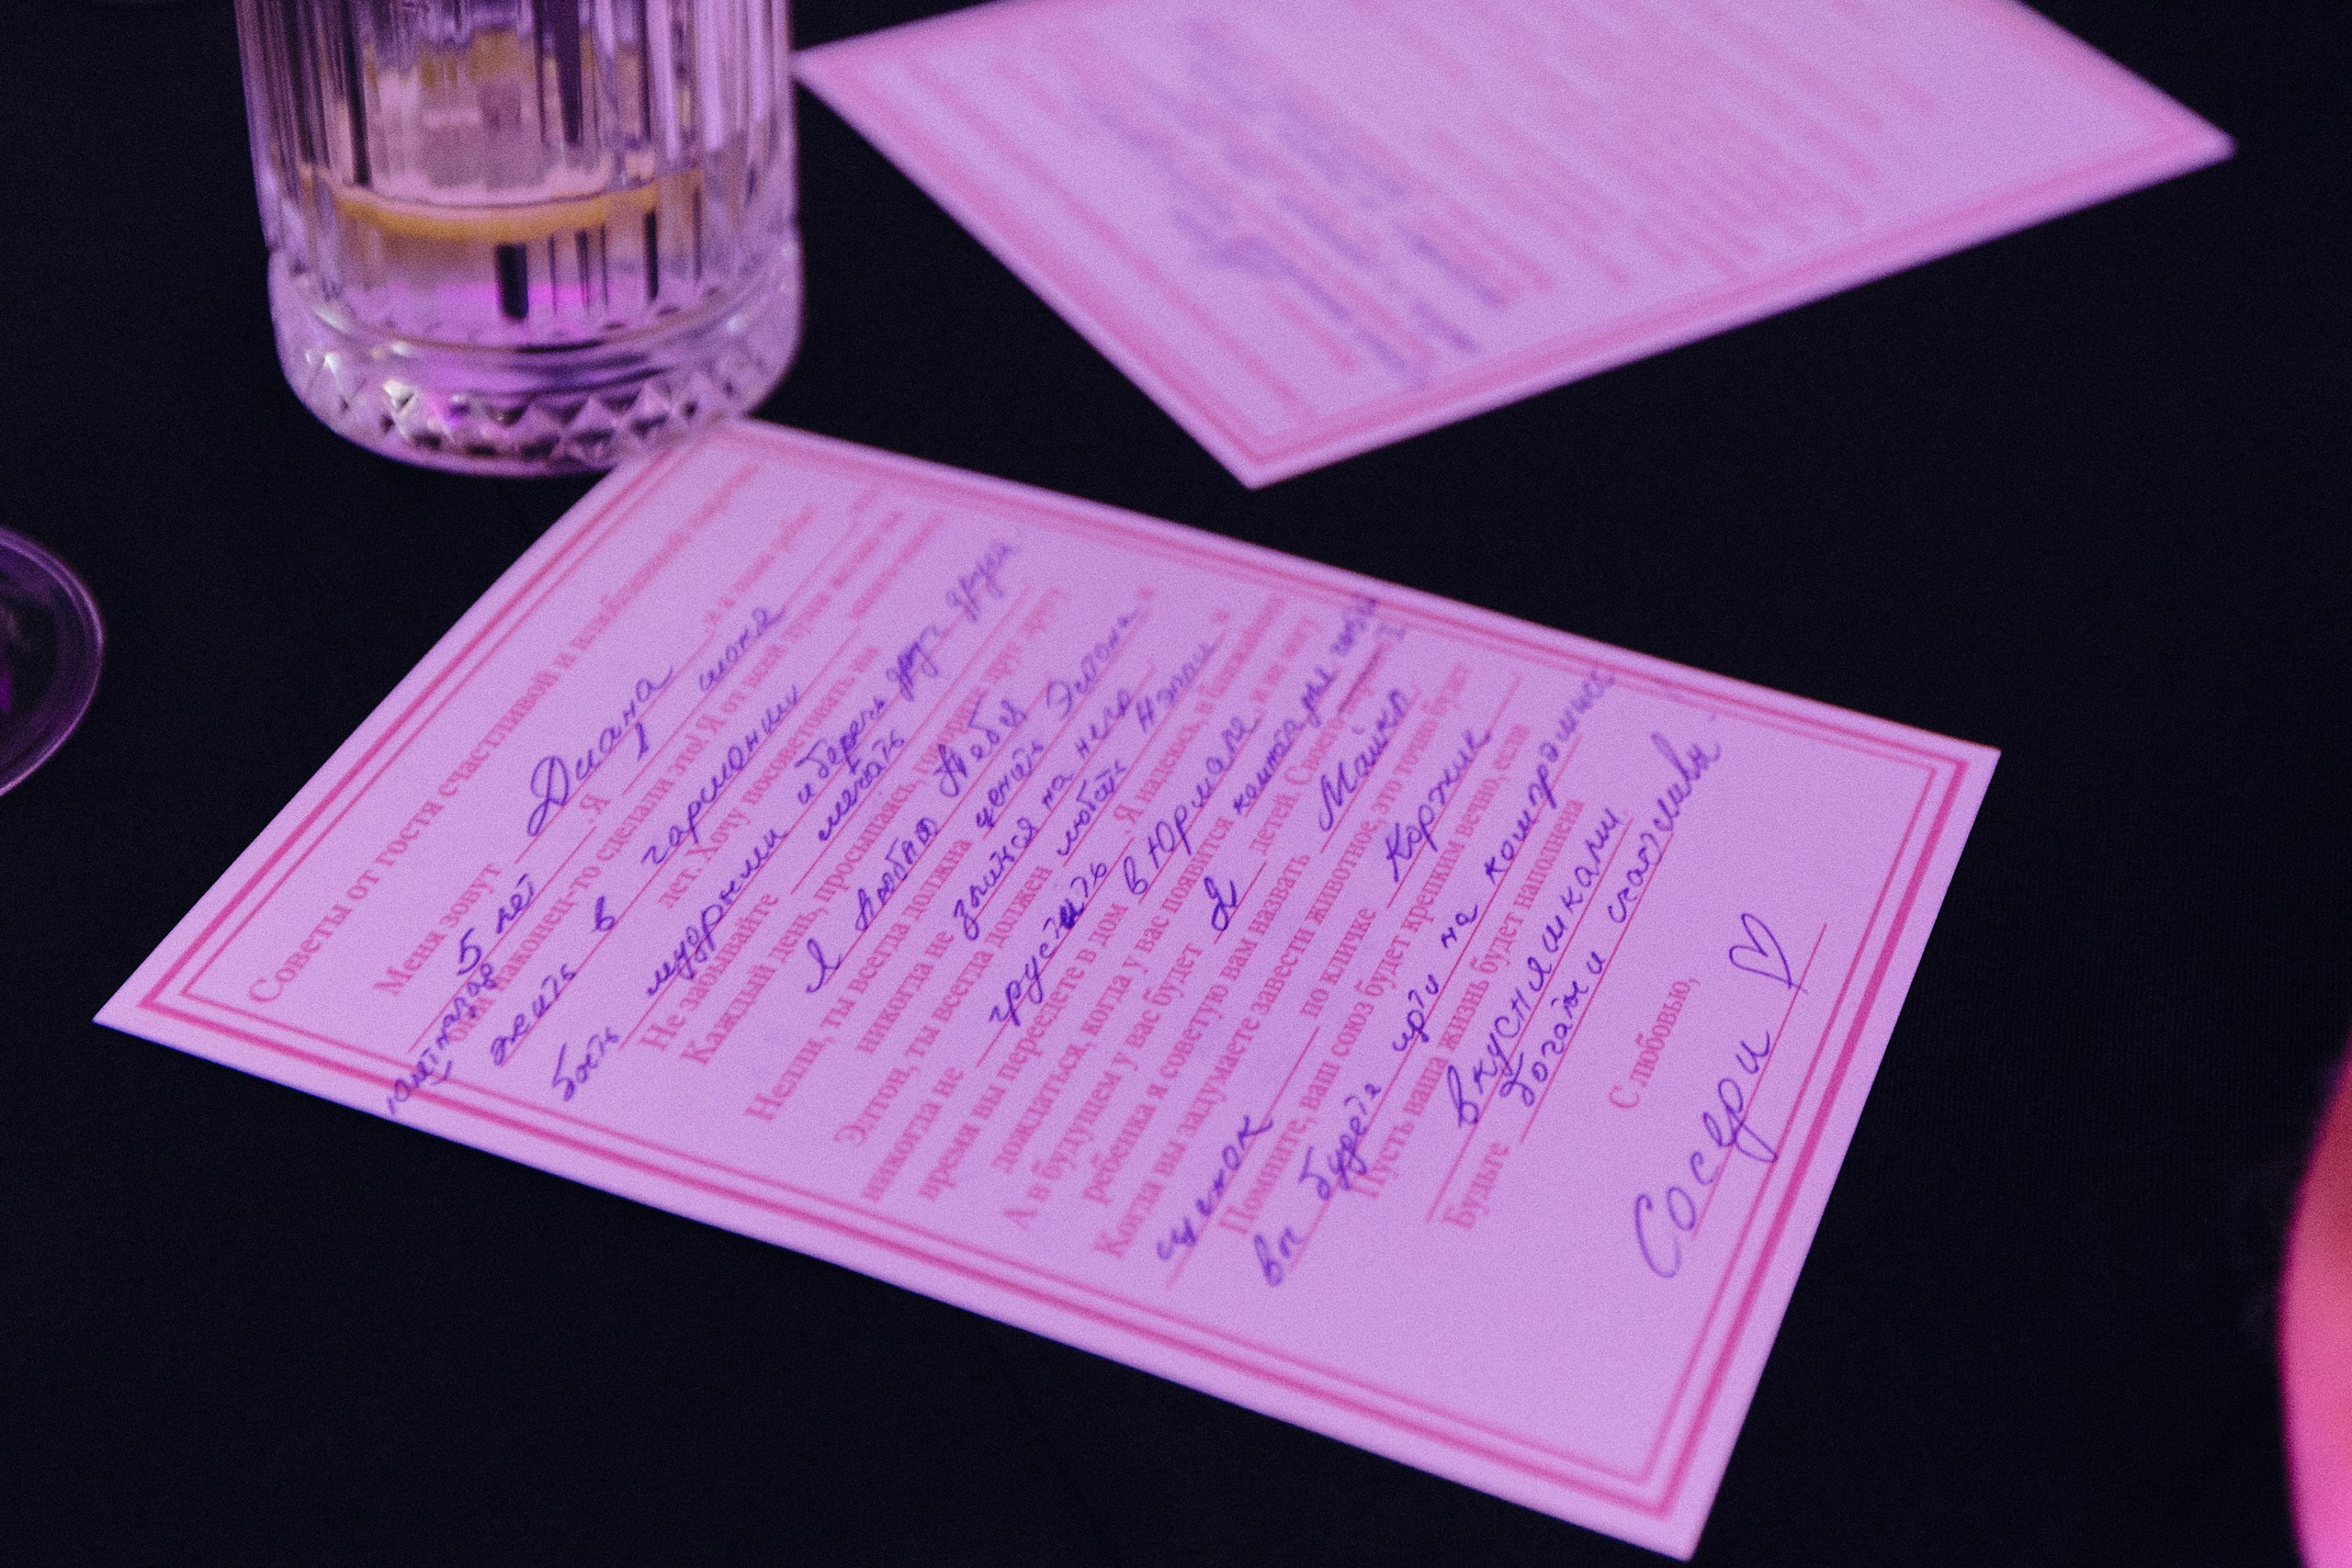 Советы от гостя счастливой и влюбленной
Меня зовут Диана
5 лет
. Я 1 июня
лет назад они наконец-то сделали это! Я от всей души
жить в гармонии
лет. Хочу посоветовать им
быть мудрыми и беречь друг друга
Не забывайте мечтать
Каждый день, просыпаясь, говорите друг другу
Я люблю тебя
Нелли, ты всегда должна ценить Элтона и
никогда не злиться на него
Элтон, ты всегда должен любить Нэлли и
никогда не грустить. Я надеюсь, в ближайшее
время вы переедете в дом в Юрмале, и не могу
дождаться, когда у вас появится
А в будущем у вас будет 2 детей. Своего
ребенка я советую вам назвать Майкл
Когда вы задумаете завести животное, это точно будет
щенок по кличке Коржик
Помните, ваш союз будет крепким вечно, если
вы будете идти на компромиссы
Пусть ваша жизнь будет наполнена
вкусняшками
Будьте богаты и счастливы
С любовью,
Сосери ♡